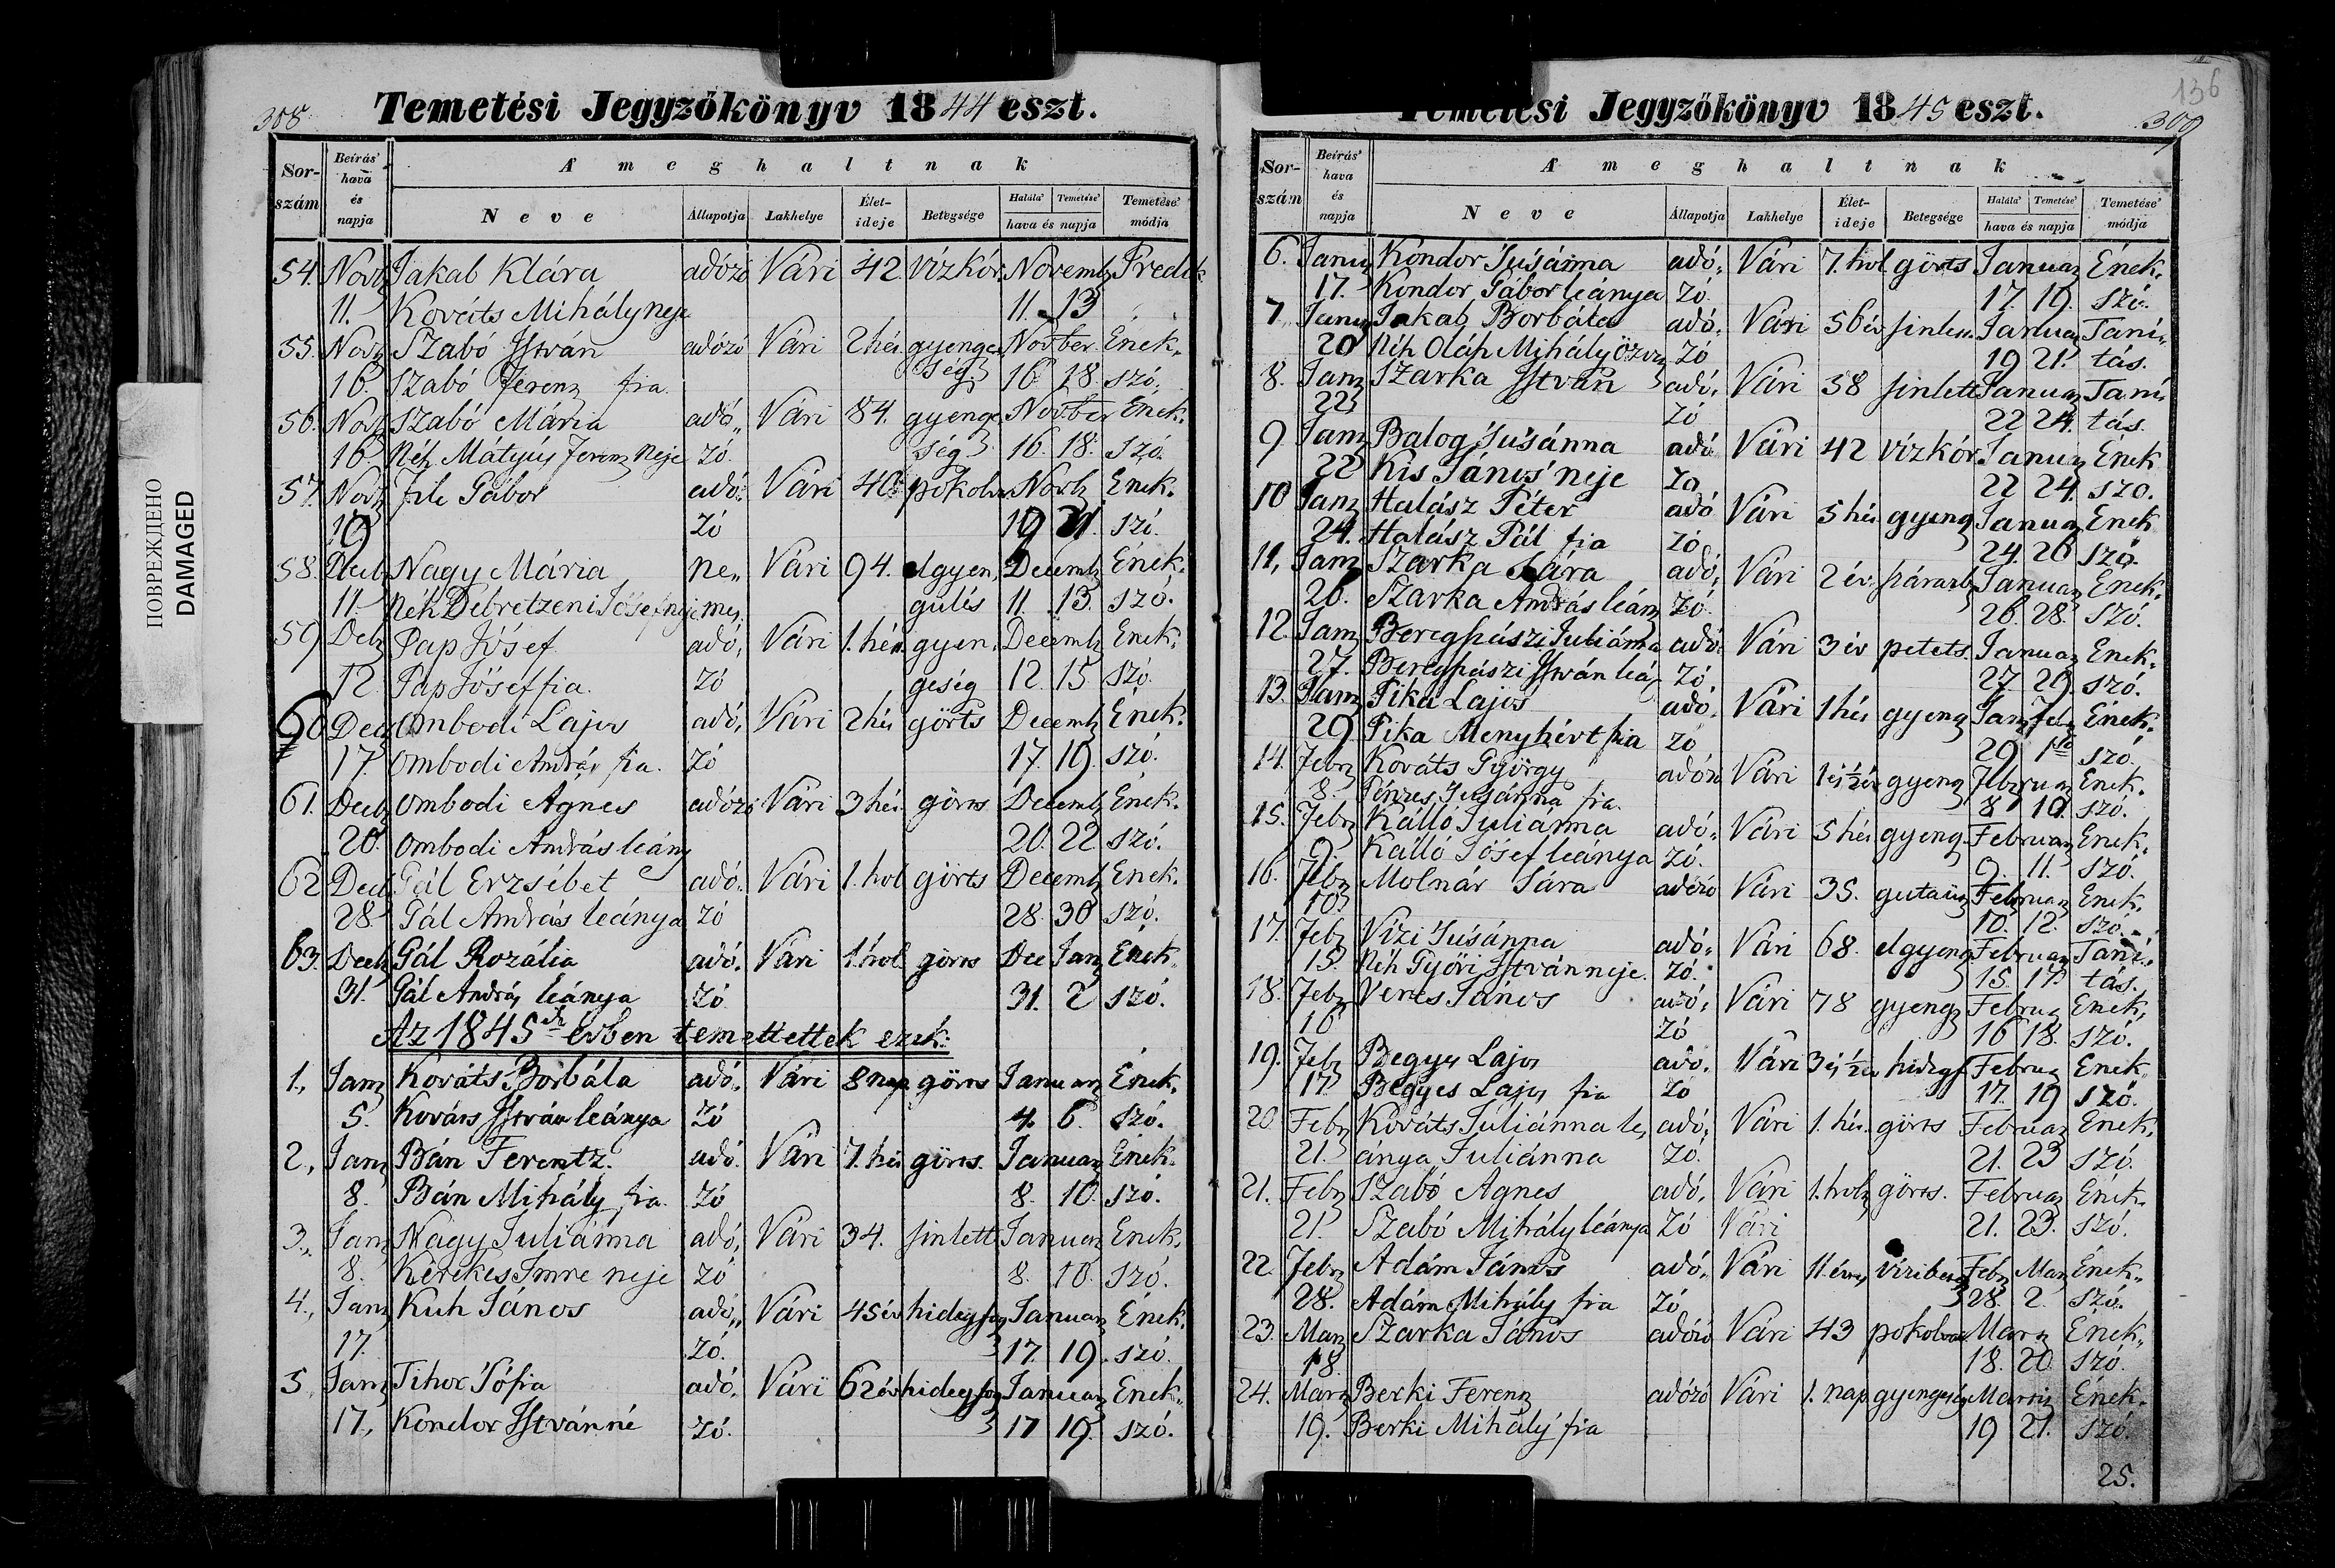 308.
Temetési Jegyzőkönyv 1844 eszt.
Sor-szám
Beírás' hava és napja
A' meghaltnak
Neve
Állapotja
Lakhelye
Élet-ideje
Betegsége
Halála' Temetése'
hava és napja
Temetése' módja
54. Jakab Klára adózó Vári 42 Vízkór Novemb Predik
11. Kováts Mihály neje 11. 13
55. Szabó István adózó Vári 2 hét gyenge Novber Ének-
16. Szabó Ferenz fia. ség 16 18. szó.
56. Szabó Mária adó„ Vári 84. gyenge Novber Ének-
16. Néh Mátyus Ferenz neje zó. ség 16. 18. szó.
57. File Gábor adó- Vári 40 Ének-
19 zó 19 21. szó.
58. Nagy Mária ne„ Vári 94. elgyen, Decemb Ének-
11. Néh Debretzeni Jósef neje mes, gülés 11. 13. szó.
59 Pap Jósef adó, Vári 1. hét. gyen, Decemb Ének-
12. Pap Jósef fia. zó geség 12. 15 szó.
60 Ombodi Lajos adó, Vári 2 hét görts Decemb Ének-
17. Ombodi András fia. zó 17. 19. szó.
61. Decb Ombodi Ágnes adózó Vári 3 hét görts Decemb Ének-
20. Ombodi András leány 20. 22 szó.
62 Gál Erzsébet adó. Vári 1. hol görts Decemb Ének-
28. Gál András leánya zó 28. 30 szó.
63. Decb Gál Rozália adó. Vári 1. hol görts Dec Jan Ének-
31. Gál András leánya zó 31. 2 szó.
Az 1845dik évben temettettek ezek:
1., Jan Kováts Borbála adó„ Vári 8 nap görts Januar Ének-
5. Kováts István leánya zó 4. 6. szó.
2., Jan Bán Ferentz. adó. Vári 7. hét görts. Januar Ének-
8. Bán Mihály fia. zó 8. 10. szó.
3., Jan Nagy Juliánna adó, Vári 34. sinlett Januar Ének-
8. Kerekes Imre neje zó 8. 10. szó.
4., Jan Kuh János adó„ Vári 45 év hideg Januar Ének-
17. zó. 17. 19. szó.
5 Jan Tihor Sófia adó, Vári 62 év hideg Januar Ének-
17., Kondor Istvánné zó. 17 19. szó.
ПОВРЕЖДЕНО
DAMAGED
136
309
Temetési Jegyzőkönyv 1845 eszt.
Sor-szám
Beírás' hava és napja
A' meghaltnak
Neve
Állapotja
Lakhelye
Élet-ideje
Betegsége
Halála' Temetése'
hava és napja
Temetése' módja
6. Kondor Susánna adó, Vári 7. hol. görts Januar Ének-
17. Kondor Gábor leánya zó. 17. 19. szó.
7 Jakab Borbála adó, Vári 56 év Januar Taní-
20 Néh Oláh Mihály özv zó 19 21. tás.
8. Jan Szarka István adó, Vári 58 sinlett Januar Taní-
22 zó 22 24. tás.
9 Jan Balog Susánna adó Vári 42 vízkór Januar Ének
22 Kis János neje zó 22 24. szó.
10 Jan Halász Péter adó Vári 5 hét gyeng Januar Ének
24. Halász Pál fia zó 24. 26 szó.
11, Jan Szarka Sára adó, Vári 2 év Januar Ének-
26. Szarka András leány zó. 26. 28. szó.
12. Jan Bereghászi Juliánna adó. Vári 3 év petets. Januar Ének-
27. Bereghászi István leá zó. 27. 29. szó.
13. Jan Pika Lajos adó. Vári 1 hét gyeng Jan Feb Ének-
29. Pika Menyhért fia zó 29. 1ső szó.
14. Febr Kováts György Vári 1 és ½ év gyeng Februar Ének-
8. Susánna fia. 8 10. szó.
15. Febr Kálló Juliánna adó„ Vári 5 hét gyeng. Februar Ének-
9. Kálló Jósef leánya zó. 9. 11. szó.
16. Febr Molnár Sára adózó Vári 35. Februar Ének-
10. 10. 12. szó.
17. Febr Vízi Susánna adó„ Vári 68. elgyeng Februar Taní-
15. Néh Győri István neje. zó. 15. 17. tás.
18. Febr Veres János adó, Vári 78 gyeng Februa Ének,
16 zó 16 18. szó.
19. Febr Begyes Lajos adó. Vári 3 és ½ év Februa Ének-
17. Begyes Lajos fia zó 17. 19 szó.
20 Febr Kováts Juliánna le, adó, Vári 1. hét. görts Februar Ének-
21. ánya Juliánna zó. 21. 23 szó.
21. Febr Szabó Ágnes adó, Vári 1. hol görts. Februar Ének-
21. Szabó Mihály leánya zó Vári 21. 23. szó.
22. Febr Adám János adó„ Vári 11. Febr Mar Ének-
28. Adám Mihály fia zó 28. 2. szó.
23. Szarka János adózó Vári 43 Ének-
18. 18. 20. szó.
24. Berki Ferenz adózó Vári 1. nap gyengeség Ének-
19. Berki Mihály fia 19 21. szó.
25.